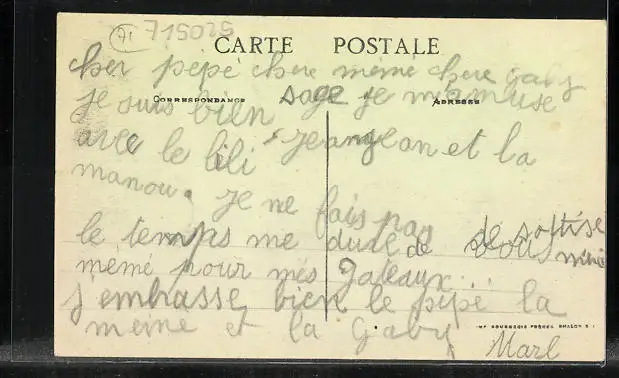 71 715025
CARTE POSTALE
cher pépé chere mémé chere Gaby
CORRESPONDANCE
ADRESSE
je suis bien sage je m'amuse
avec le lili Jeangeon et la
manou. Je ne fais pas
de sottise
le temps me dure de vous
mémé pour mes gateaux...
j'embrasse bien le pépé la
meme et la Gaby
IMP BOURGEOIS FRÈRES CHALON S S
Marl